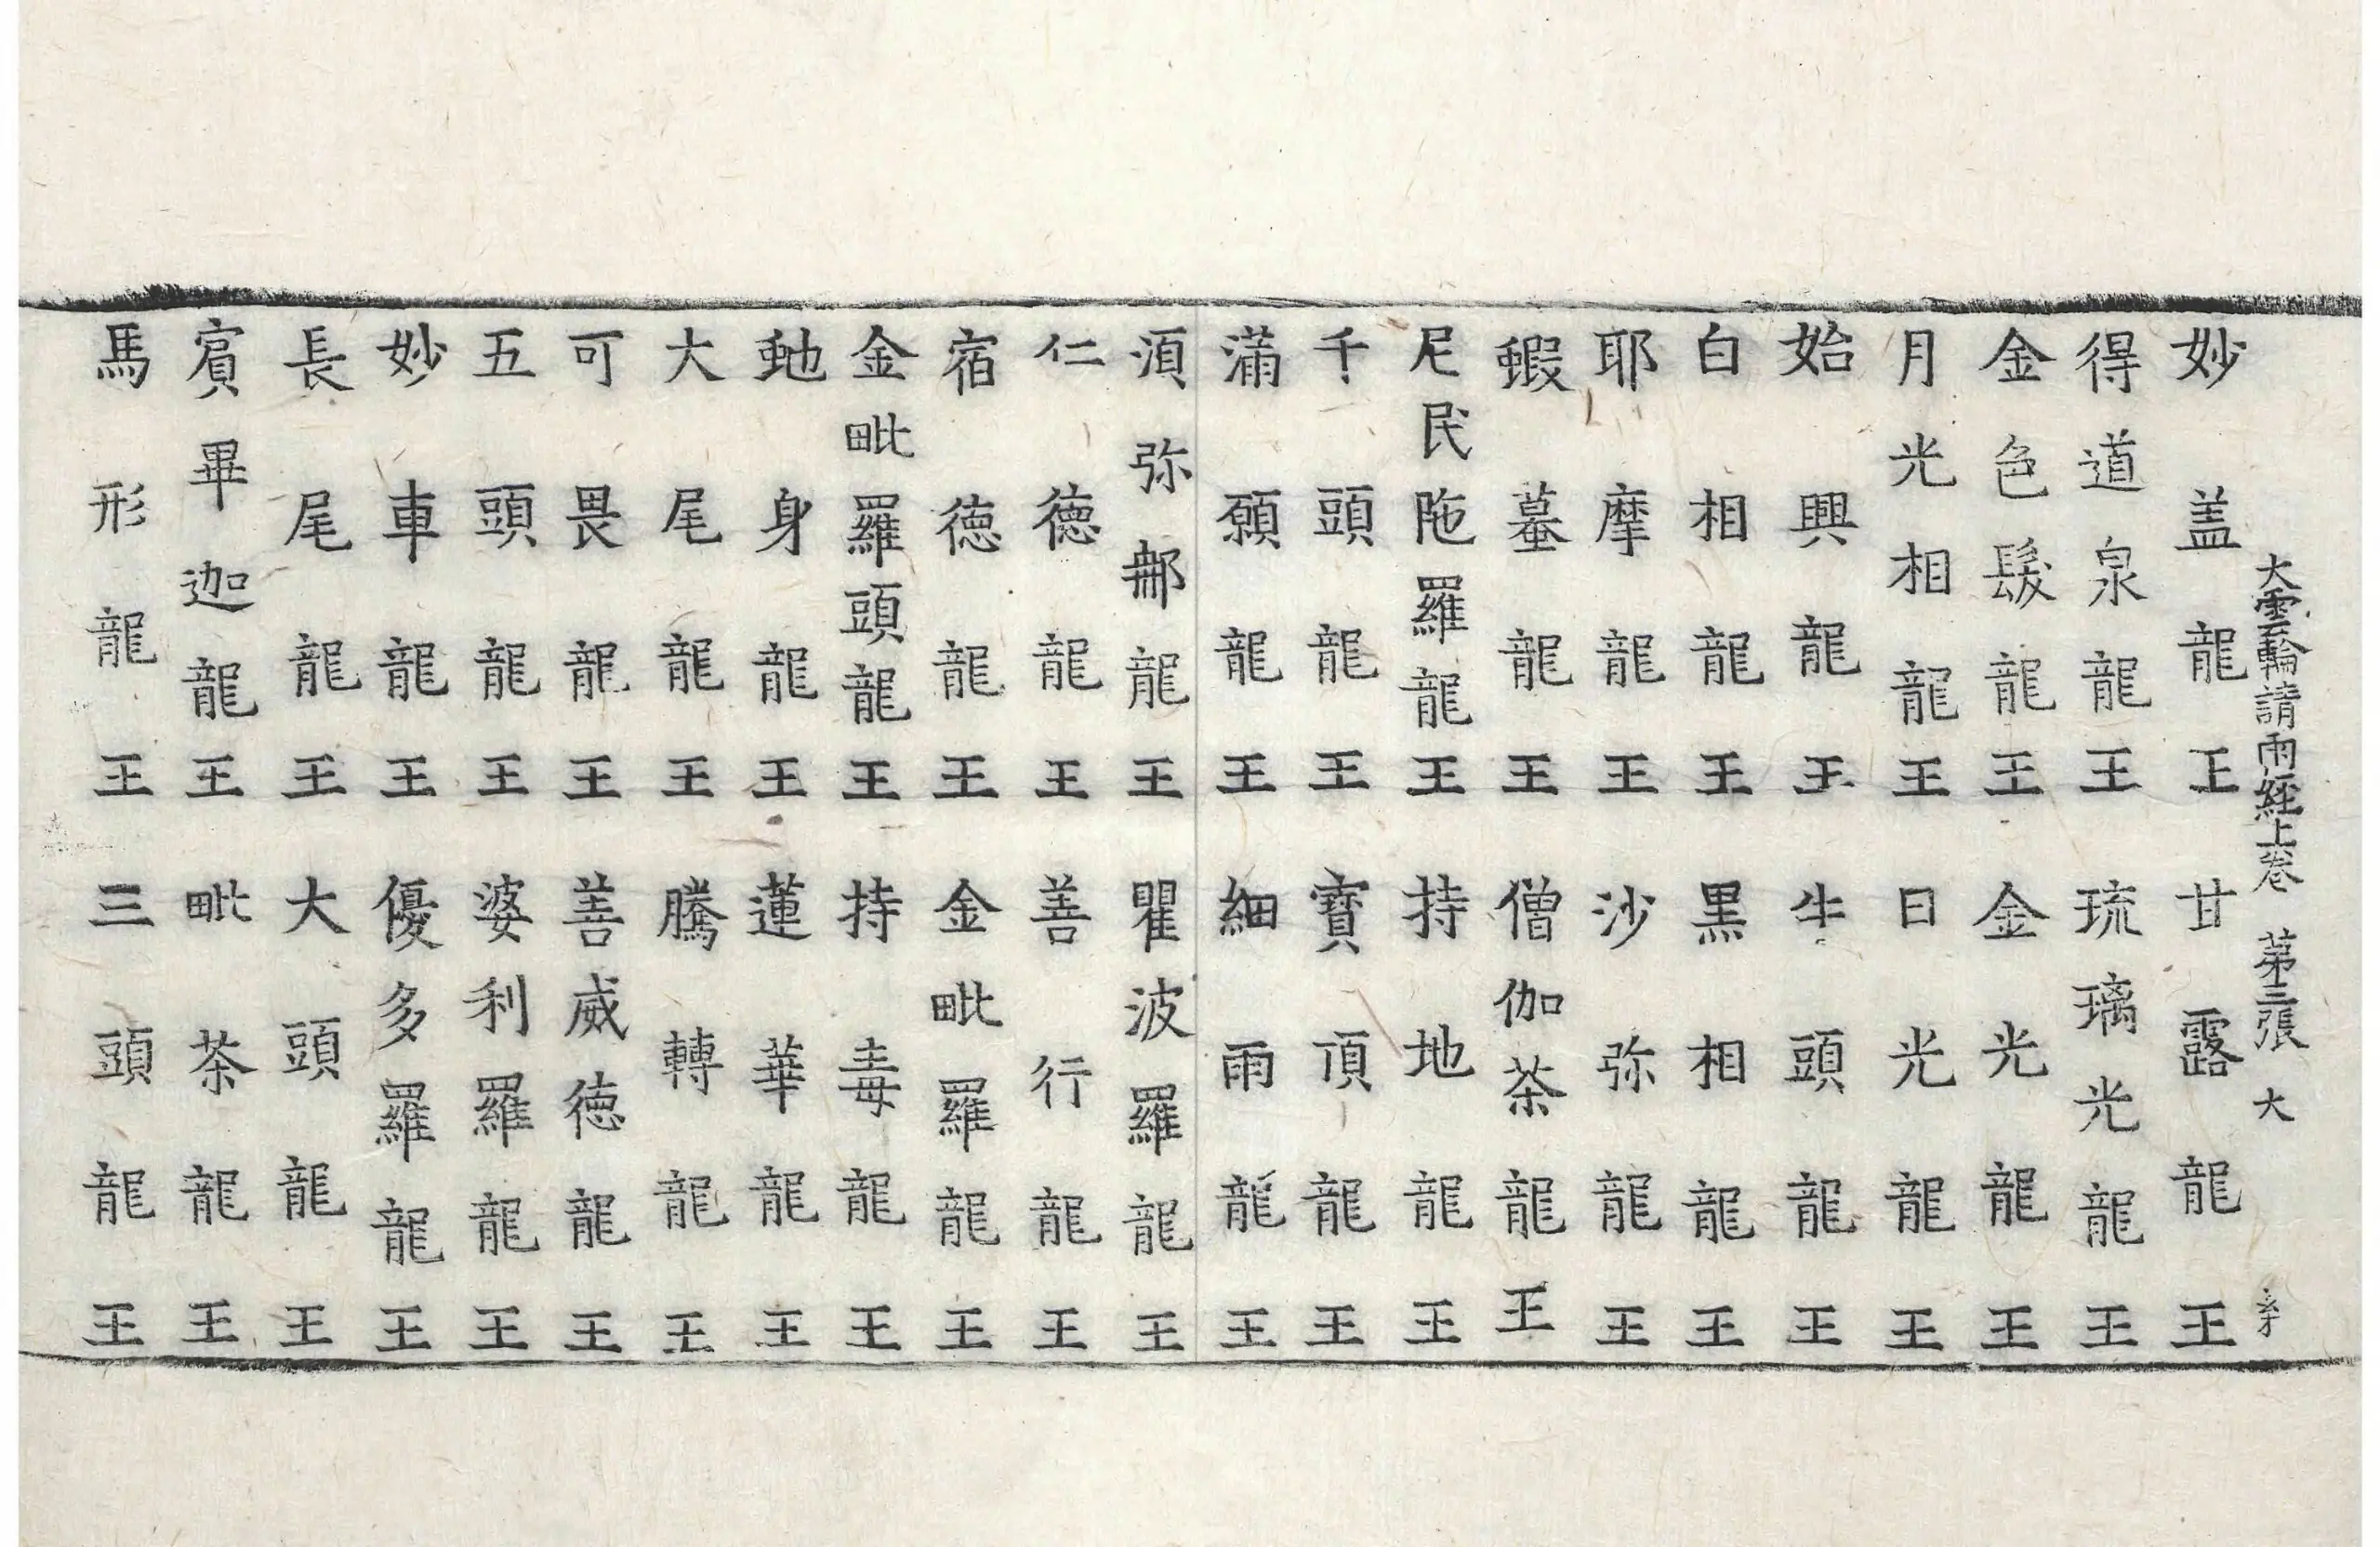 大雲輪請雨経上卷 第三張 大
妙盖龍王 甘露龍王
得道泉龍王 琉璃光龍王
金色髮龍王 金光龍王
月光相龍王 日光龍王
始興龍王 牛頭龍王
白相龍王 黒相龍王
耶摩龍王 沙弥龍王
蝦蟇龍王 僧伽茶龍王
尼民陁羅龍王 持地龍王
千頭龍王 寶頂龍王
滿願龍王 細雨龍王
湏弥那龍王 瞿波羅龍王
仁德龍王 善行龍王
宿德龍王 金毗羅龍王
金毗羅頭龍王 持毒龍王
虵身龍王 蓮華龍王
大尾龍王 騰轉龍王
可畏龍王 善威德龍王
五頭龍王 婆利羅龍王
妙車龍王 優多羅龍王
長尾龍王 大頭龍王
賔畢迦龍王 毗茶龍王
馬形龍王 三頭龍王